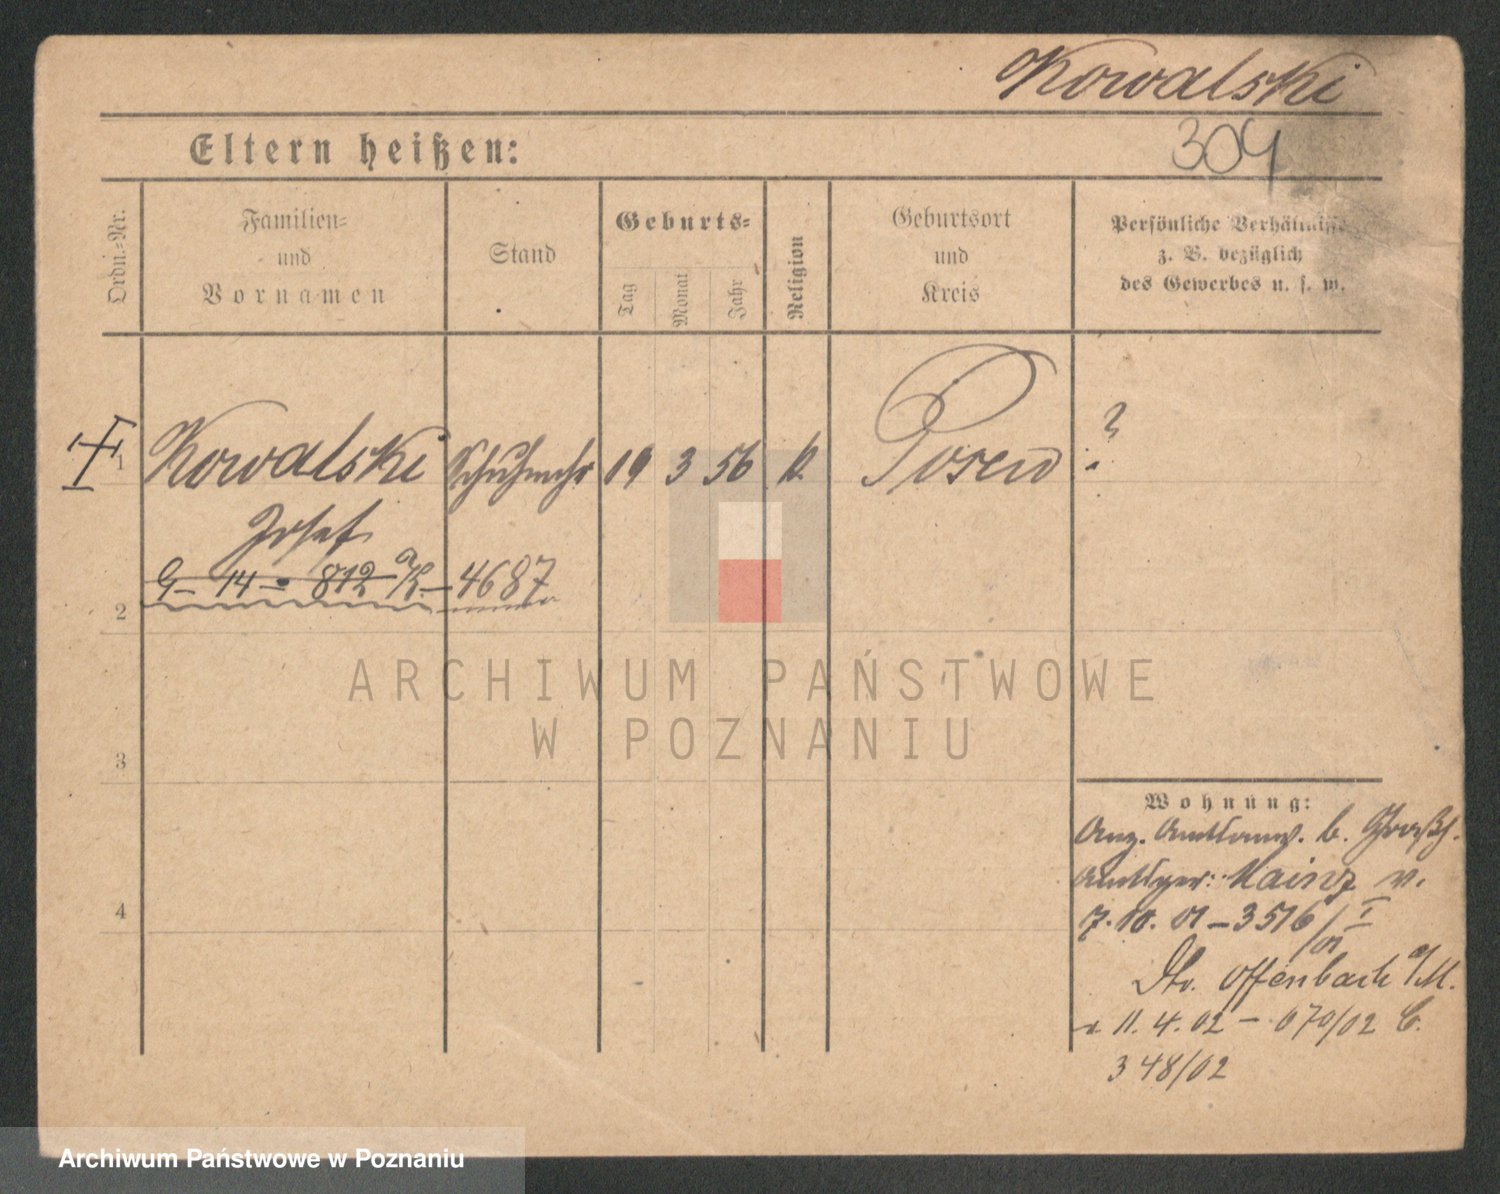 Kowalski
304
Eltern heißen:
Ordn.-Nr.
Familien-
und
Vornamen
Stand
Geburts-
Tag
Monat
Jahr
Religion
Geburtsort
und
Kreis
Persönliche Verhältnisse
z. B. bezüglich
des Gewerbes u. s. w.
1 Kowalski Schuhmchr 19 3 56 k. Posen ?
Josef
G - 14 - 812 - 4687
2
3
4
Wohnung:
Anz. Amtsanw. b. Großh.
Amtsger. Mainz v.
7. 10. 01 - 3516/01 I
Do. Offenbach a/M.
v. 11. 4. 02 - 670/02 C.
348/02
ARCHIWUM PAŃSTWOWE
W POZNANIU
Archiwum Państwowe w Poznaniu